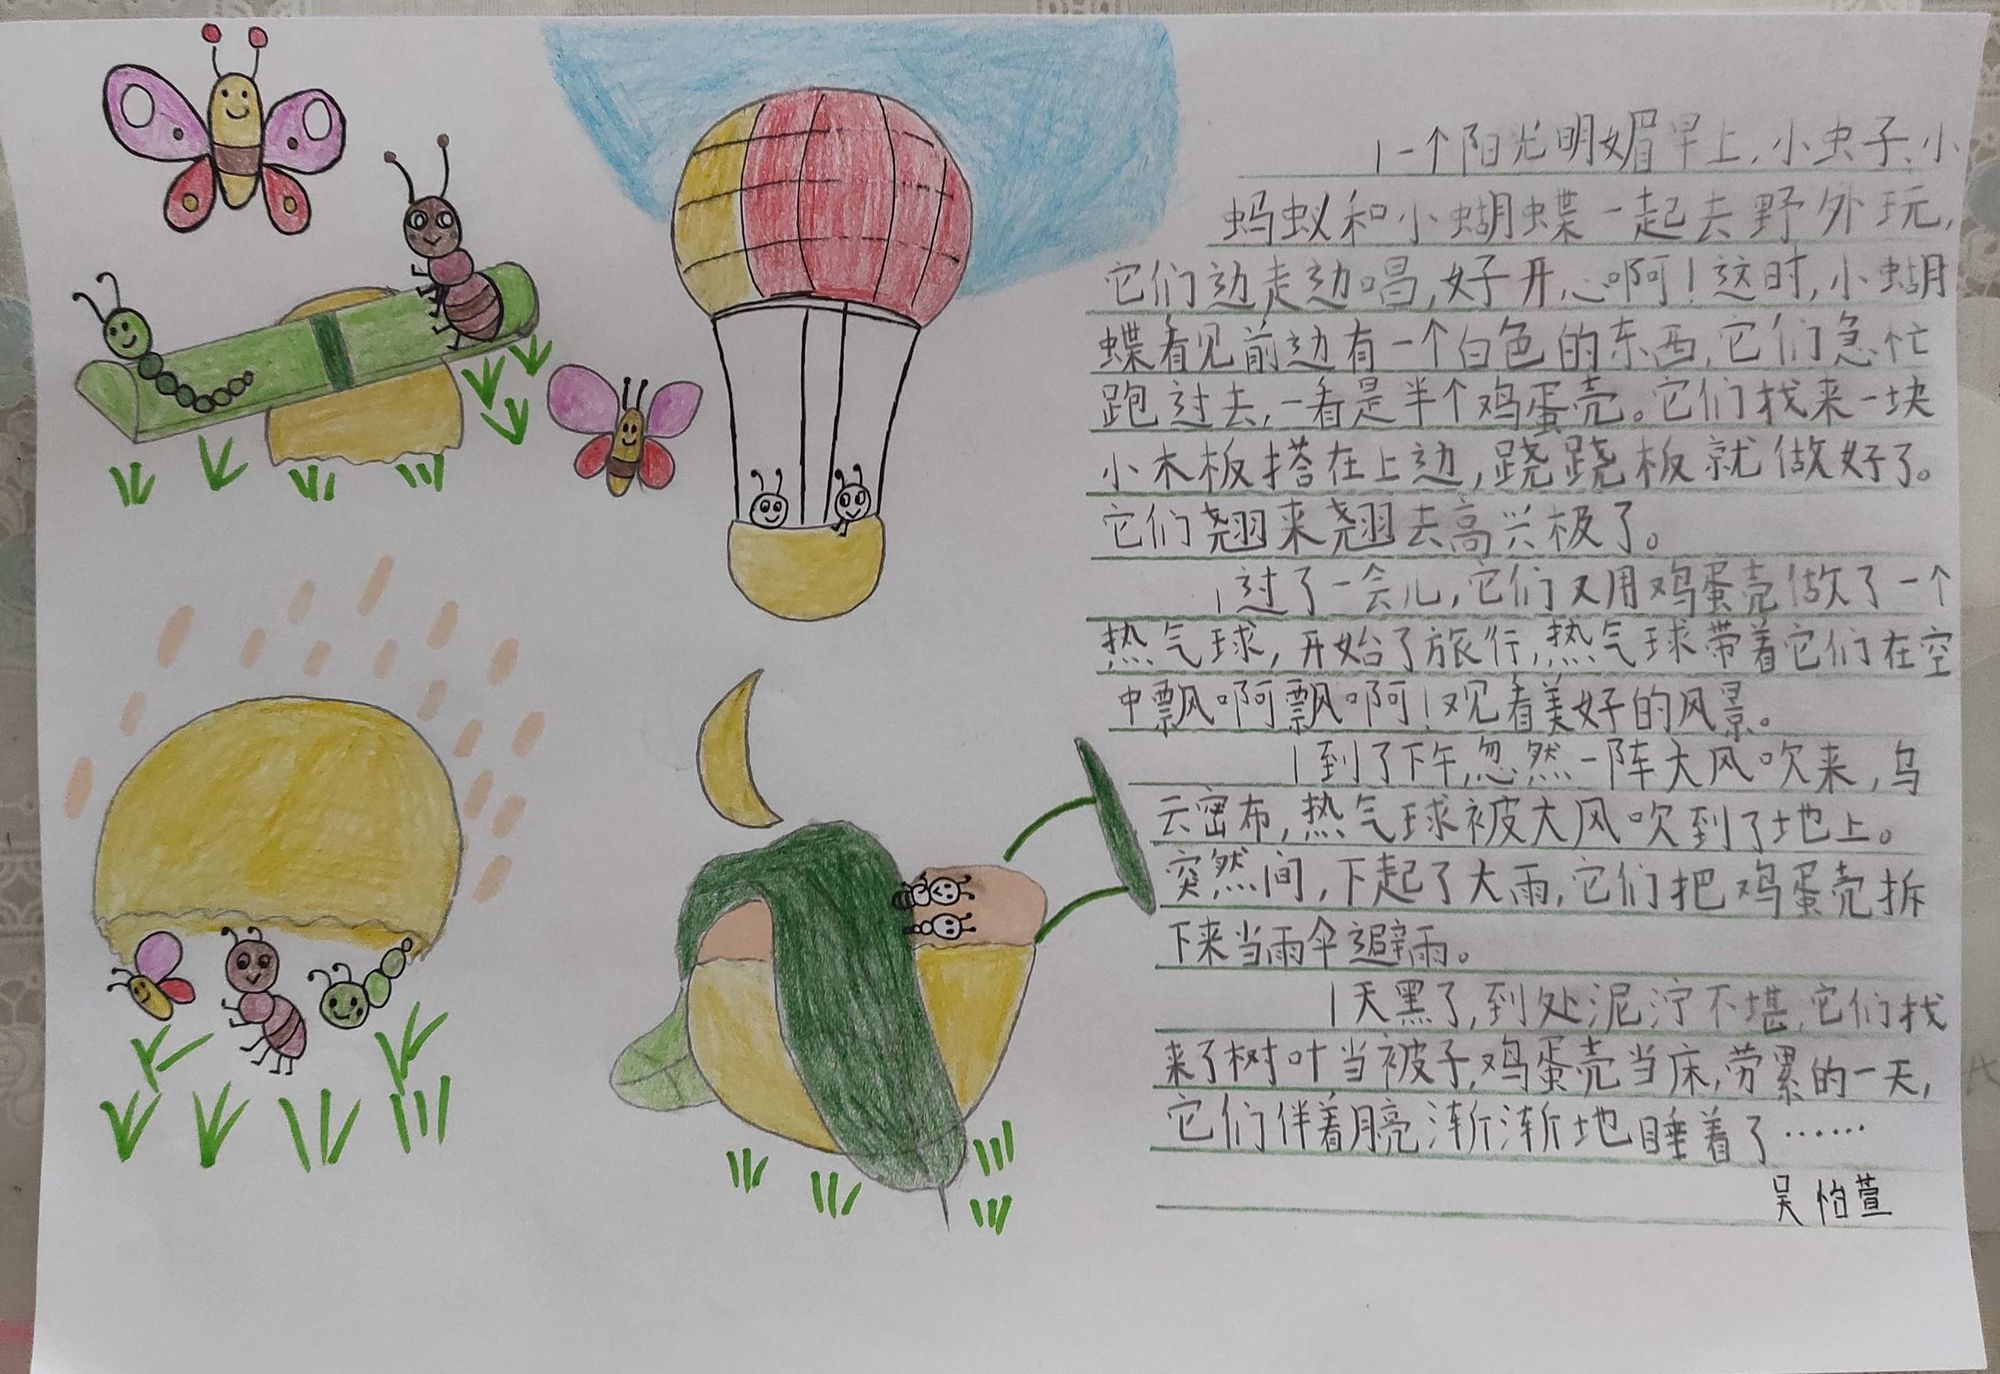 一个阳光明媚早上,小虫子、小
蚂蚁和小蝴蝶一起去野外玩,
它们边走边唱,好开心啊!这时,小蝴
蝶看见前边有一个白色的东西,它们急忙
跑过去,一看是半个鸡蛋壳。它们找来一块
小木板搭在上边,跷跷板就做好了。
它们翘来翘去高兴极了。
过了一会儿,它们又用鸡蛋壳做了一个
热气球,开始了旅行,热气球带着它们在空
中飘啊飘啊!观看美好的风景。
到了下午,忽然一阵大风吹来,乌
云密布,热气球被大风吹到了地上。
突然间,下起了大雨,它们把鸡蛋壳拆
下来当雨伞避雨。
天黑了,到处泥泞不堪,它们找
来了树叶当被子,鸡蛋壳当床,劳累的一天,
它们伴着月亮渐渐地睡着了……
吴怡萱